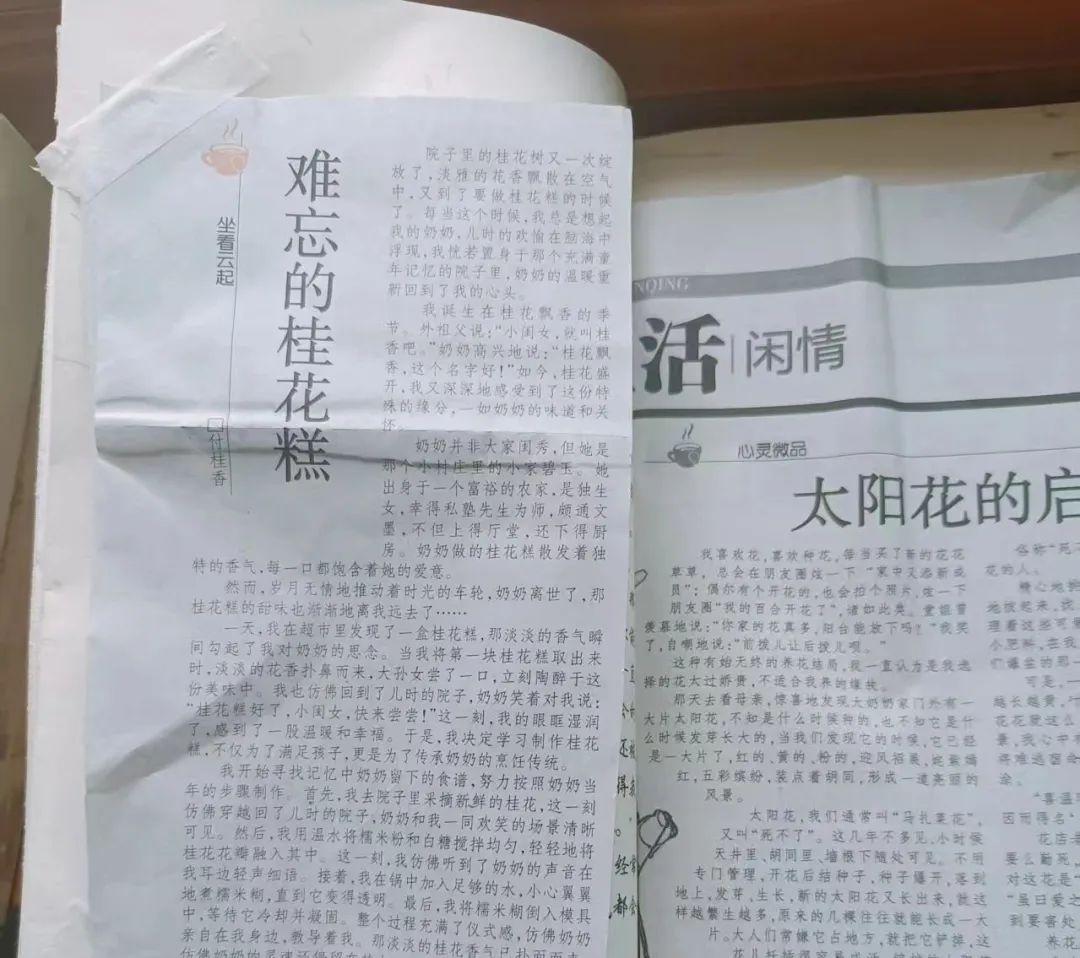 坐看云起
难忘的桂花糕
□付桂香
院子里的桂花树又一次绽
放了，淡雅的花香飘散在空气
中，又到了要做桂花糕的时候
了。每当这个时候，我总是想起
我的奶奶，儿时的欢愉在脑海中
浮现，我恍若置身于那个充满童
年记忆的院子里，奶奶的温暖重
新回到了我的心头。
我诞生在桂花飘香的季
节。外祖父说：“小闺女，就叫桂
香吧。”奶奶高兴地说：“桂花飘
香，这个名字好！”如今，桂花盛
开，我又深深地感受到了这份特
殊的缘分，一如奶奶的味道和关
怀。
奶奶并非大家闺秀，但她是
那个小村庄里的小家碧玉。她
出身于一个富裕的农家，是独生
女，幸得私塾先生为师，颇通文
墨，不但上得厅堂，还下得厨
房。奶奶做的桂花糕散发着独
特的香气，每一口都饱含着她的爱意。
然而，岁月无情地推动着时光的车轮，奶奶离世了，那
桂花糕的甜味也渐渐地离我远去了……
一天，我在超市里发现了一盒桂花糕，那淡淡的香气瞬
间勾起了我对奶奶的思念。当我将第一块桂花糕取出来
时，淡淡的花香扑鼻而来，大孙女尝了一口，立刻陶醉于这
份美味中。我也仿佛回到了儿时的院子，奶奶笑着对我说：
“桂花糕好了，小闺女，快来尝尝！”这一刻，我的眼眶湿润
了，感到了一股温暖和幸福。于是，我决定学习制作桂花
糕，不仅为了满足孩子，更是为了传承奶奶的烹饪传统。
我开始寻找记忆中奶奶留下的食谱，努力按照奶奶当
年的步骤制作。首先，我去院子里采摘新鲜的桂花，这一刻
仿佛穿越回了儿时的院子，奶奶和我一同欢笑的场景清晰
可见。然后，我用温水将糯米粉和白糖搅拌均匀，轻轻地将
桂花花瓣融入其中。这一刻，我仿佛听到了奶奶的声音在
我耳边轻声细语。接着，我在锅中加入足够的水，小心翼翼
地煮糯米糊，直到它变得透明。最后，我将糯米糊倒入模具
中，等待它冷却并凝固。整个过程充满了仪式感，仿佛奶奶
亲自在我身边，教导着我。那淡淡的桂花香气已扑面而来，
NQING
活|闲情
心灵微品
太阳花的启
我喜欢花，喜欢种花，每当买了新的花花
草草，总会在朋友圈炫一下“家中又添新成
员”；偶尔有个开花的，也会拍个照片，炫一下
朋友圈“我的百合开花了”，诸如此类。堂姐曾
羡慕地说：“你家的花真多，阳台能放下吗？”我笑
了，自嘲地说：“前拨儿让后拨儿呗。”
这种有始无终的养花结局，我一直认为是我选
择的花太过娇贵，不适合我养的缘故。
那天去看母亲，惊喜地发现大奶奶家门外有一
大片太阳花，不知是什么时候种的，也不知它是什
么时候发芽长大的，当我们发现它的时候，它已经
是一大片了，红的、黄的、粉的，迎风招展，姹紫嫣
红，五彩缤纷，装点着胡同，形成一道亮丽的
风景。
太阳花，我们通常叫“马扎菜花”，
又叫“死不了”。这几年不多见，小时候
天井里、胡同里、墙根下随处可见。不用
专门管理，开花后结种子，种子爆开，落到
地上，发芽，生长，新的太阳花又长出来，就这
样越繁生越多，原来的几棵往往就能长成一大
片。大人们常嫌它占地方，就把它铲掉，这
俗称“死不
花的人。
精心地挑
地拔起来，找
理着这些可
小肥料，在我
们爆盆的那一
可是，一
越长越黄，
花花就这么
景，我心中有
将难逃宿命
涂。
“喜温
因而得名“
花店
要么勤死，
对这花是“
“虽口爱之
到要害处
养花
还
得
经常
都会